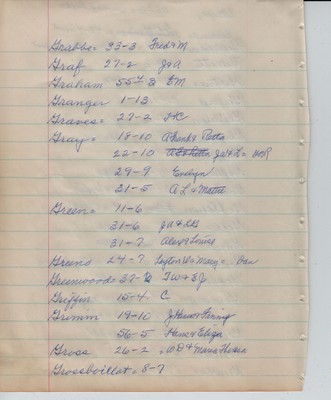 Grabbe = 33-3 Fred & M
Graf 27-2 J & A
Graham 55 EM
Granger 1-13
Graves = 27-2
Gray = 18-10 Frank &
22-10 J W & L =
29-9 Evelyn
31-5 A L & Mattie
Green = 11-6
31-6 J A &
31-7 Alex & Louise
Greene 24-7 & Mary =
Greenwood = 37- T W & E J
Griffin 15-4 C
Grimm 19-10 J Henry & Fanny
56-5 Henry & Eliza
Gross 26-2 = W D & Maria
Grossboillot = 8-7